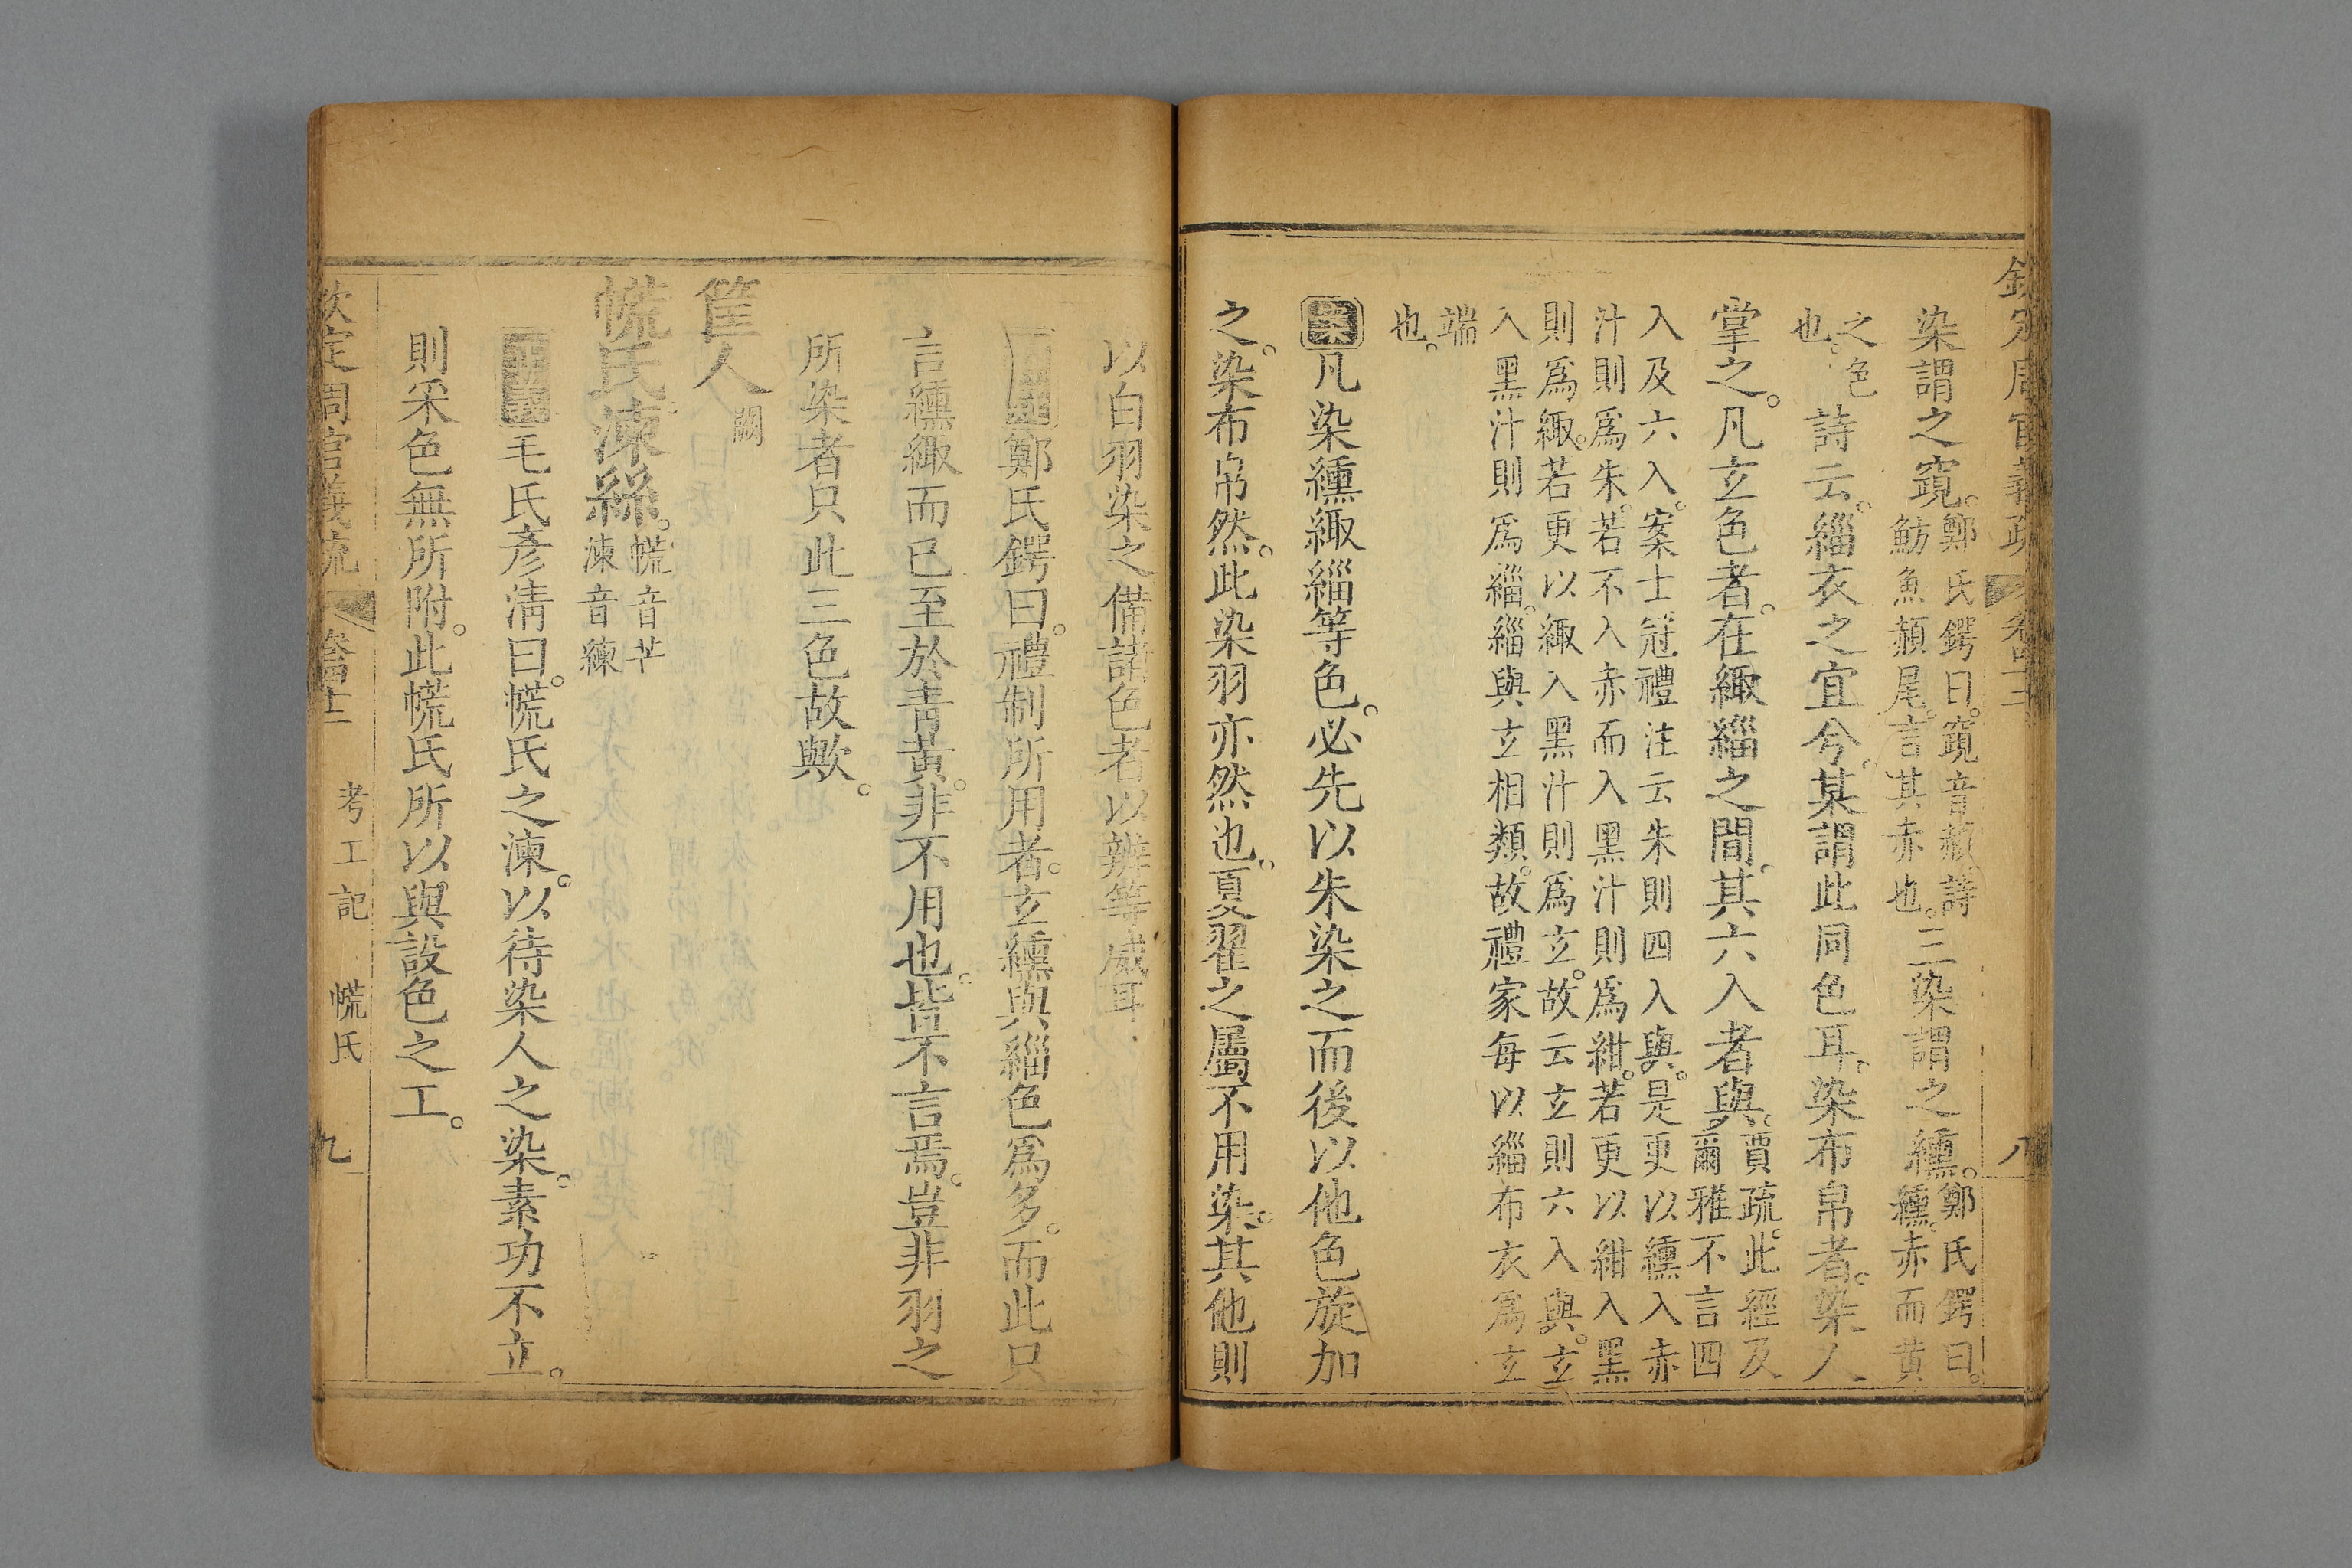 欽定周官義疏 卷四十三 八
染謂之窺。鄭氏鍔曰。窺音赬。詩
魴魚赬尾。言其赤也。三染謂之纁。鄭氏鍔曰。
纁。赤而黃
之色
也。詩云。緇衣之宜兮。某謂此同色耳。染布帛者。染人
掌之。凡玄色者。在緅緇之間。其六入者與。賈疏。此經及
爾雅不言四
入及六入。案士冠禮注云朱則四入與。是更以纁入赤
汁則爲朱。若不入赤而入黑汁則爲紺。若更以紺入黑
則爲緅。若更以緅入黑汁則爲玄。故云玄則六入與。玄
入黑汁則爲緇。緇與玄相類。故禮家每以緇布衣爲玄
端
也。
案凡染纁緅緇等色。必先以朱染之而後以他色旋加
之。染布帛然。此染羽亦然也。夏翟之屬不用染。其他則
以白羽染之備諸色者以辨等威耳
鄭氏鍔曰。禮制所用者。玄纁與緇色爲多。而此只
言纁緅而已至於靑黃。非不用也。皆不言焉。豈非羽之
所染者只此三色故歟。
筐人闕
㡛氏。湅絲。㡛音芒
湅音練
毛氏彥淸曰。㡛氏之湅。以待染人之染。素功不立。
則采色無所附。此㡛氏所以與設色之工。
欽定周官義疏 考工記 㡛氏 九